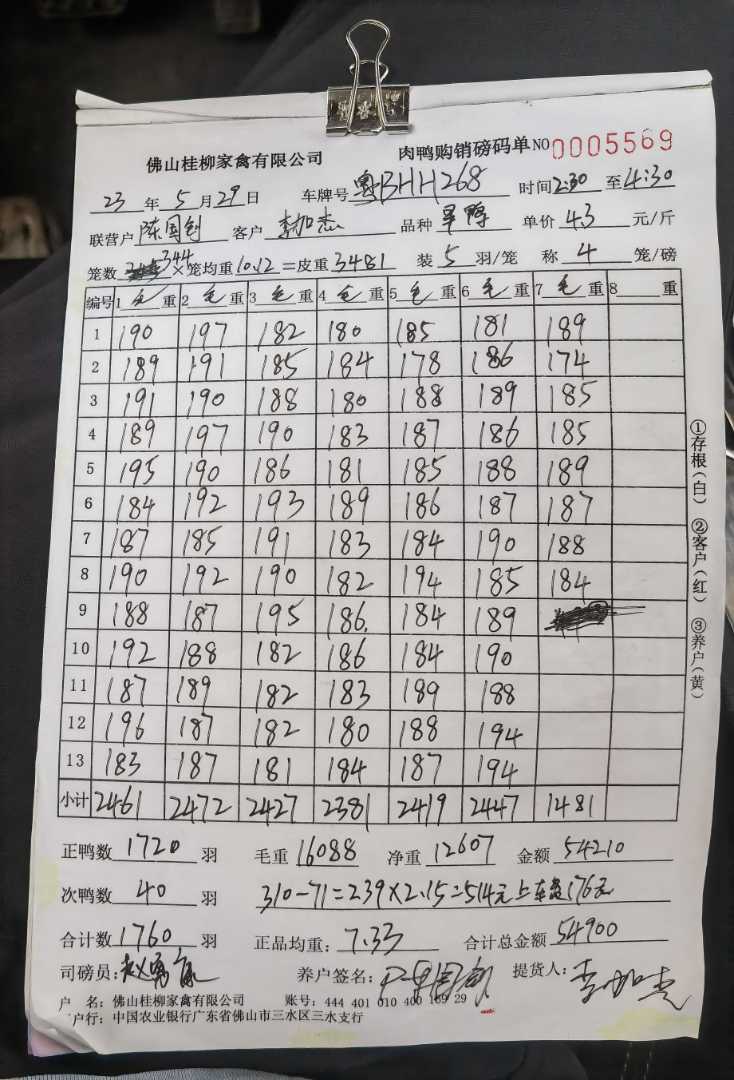 佛山桂柳家禽有限公司 肉鸭购销磅码单 NO 0005569
23 年 5 月 29 日 车牌号 粤BHH268 时间 2:30 至 4:30
联营户 陈国创 客户 李加杰 品种 旱鸭 单价 4.3 元/斤
笼数 344 ×笼均重 10.12 =皮重 3481 装 5 羽/笼 称 4 笼/磅
编号 1 毛 重 2 毛 重 3 毛 重 4 毛 重 5 毛 重 6 毛 重 7 毛 重 8 重
1 190 197 182 180 185 181 189
2 189 191 185 184 178 186 174
3 191 190 188 180 188 189 185
4 189 197 190 183 187 186 185
5 195 190 186 181 185 188 189
6 184 192 193 189 186 187 187
7 187 185 191 183 184 190 188
8 190 192 190 182 194 185 184
9 188 187 195 186 184 189
10 192 188 182 186 184 190
11 187 189 182 183 189 188
12 196 187 182 180 188 194
13 183 187 181 184 187 194
小计 2461 2472 2427 2381 2419 2447 1481
正鸭数 1720 羽 毛重 16088 净重 12607 金额 54210
次鸭数 40 羽 310-71=239×2.15=514元 176元
合计数 1760 羽 正品均重: 7.33 合计总金额 54900
司磅员: 养户签名: 提货人: 李加杰
户 名: 佛山桂柳家禽有限公司 账号: 444 401 010 400 169 29
户行: 中国农业银行广东省佛山市三水区三水支行
①存根(白) ②客户(红) ③养户(黄)